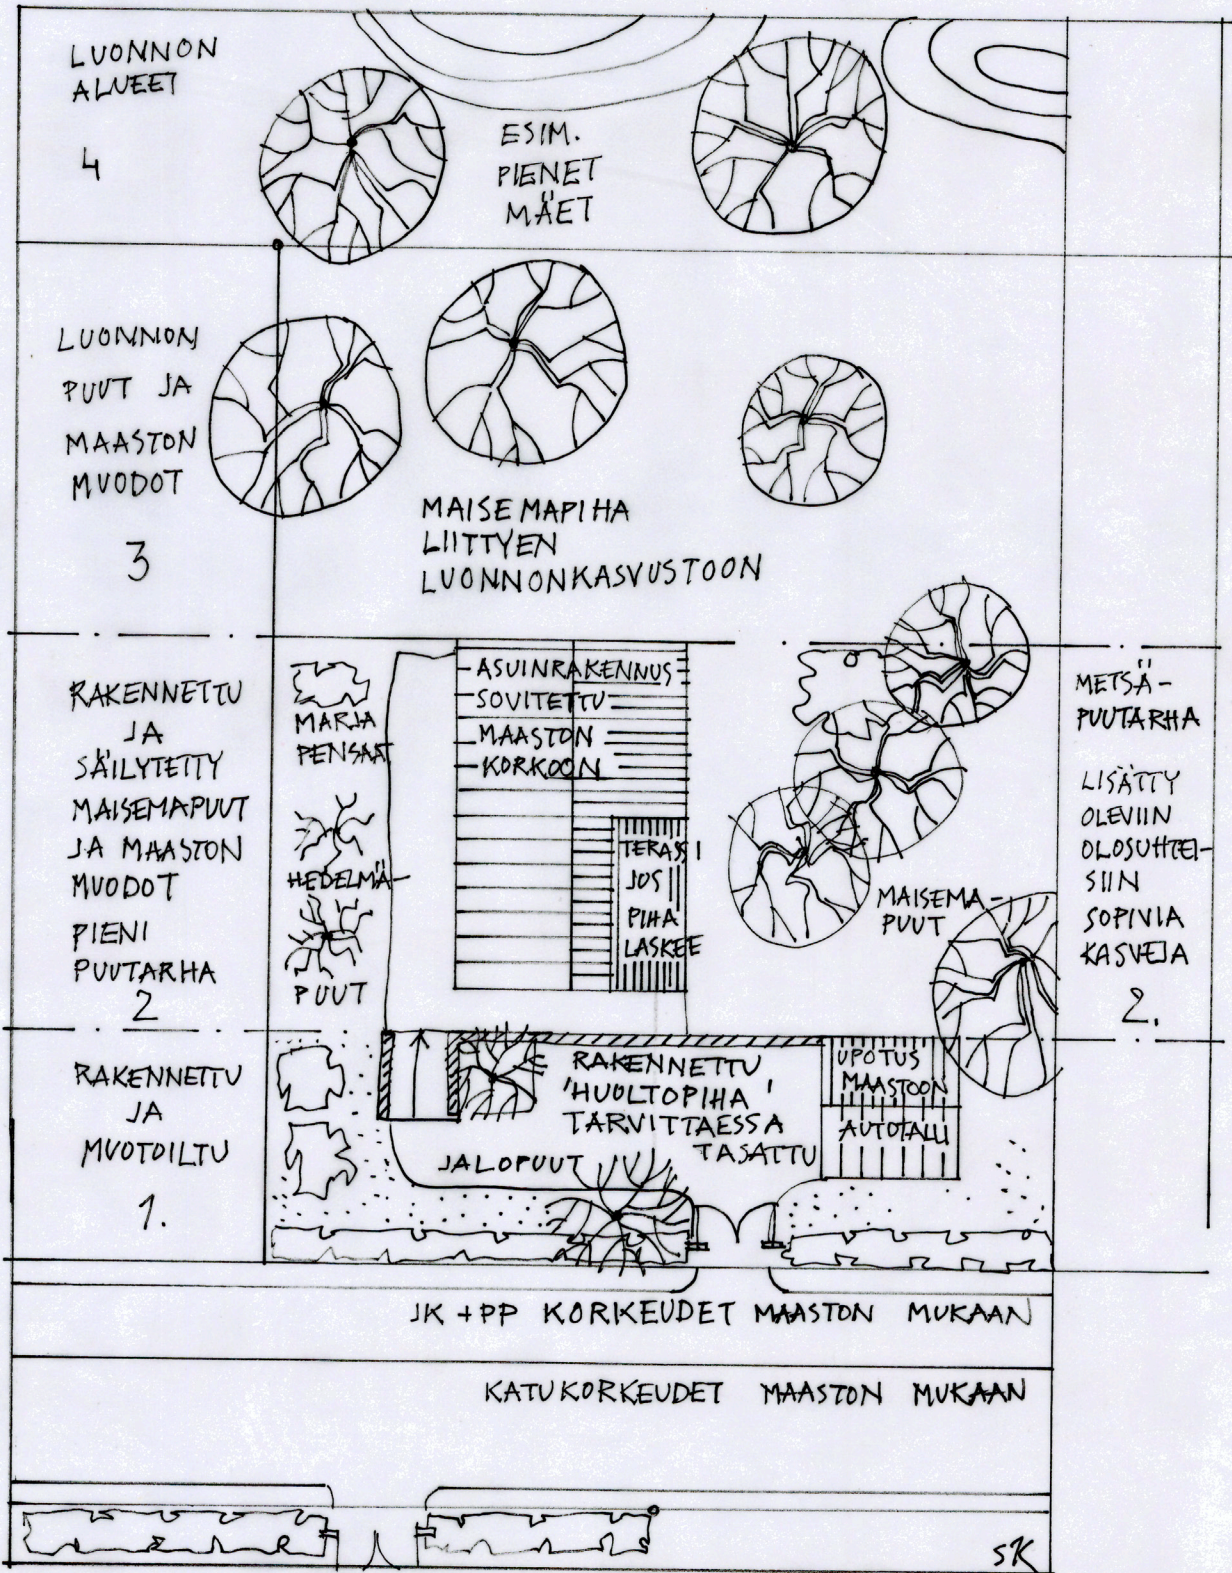 LUONNON
ALUEET
4
ESIM.
PIENET
MÄET
LUONNON
PUUT JA
MAASTON
MUODOT
3
MAISEMAPIHA
LIITTYEN
LUONNONKASVUSTOON
RAKENNETTU
JA
SÄILYTETTY
MAISEMAPUUT
JA MAASTON
MUODOT
PIENI
PUUTARHA
2
MARJA
PENSAAT
HEDELMÄ-
PUUT
ASUINRAKENNUS
SOVITETTU
MAASTON
KORKOON
TERASSI
JOS
PIHA
LASKEE
MAISEMA-
PUUT
METSÄ-
PUUTARHA
LISÄTTY
OLEVIIN
OLOSUHTEI-
SIIN
SOPIVIA
KASVEJA
2.
RAKENNETTU
JA
MUOTOILTU
1.
RAKENNETTU
'HUOLTOPIHA'
TARVITTAESSA
TASATTU
JALOPUUT
UPOTUS
MAASTOON
AUTOTALLI
JK + PP KORKEUDET MAASTON MUKAAN
KATUKORKEUDET MAASTON MUKAAN
SK